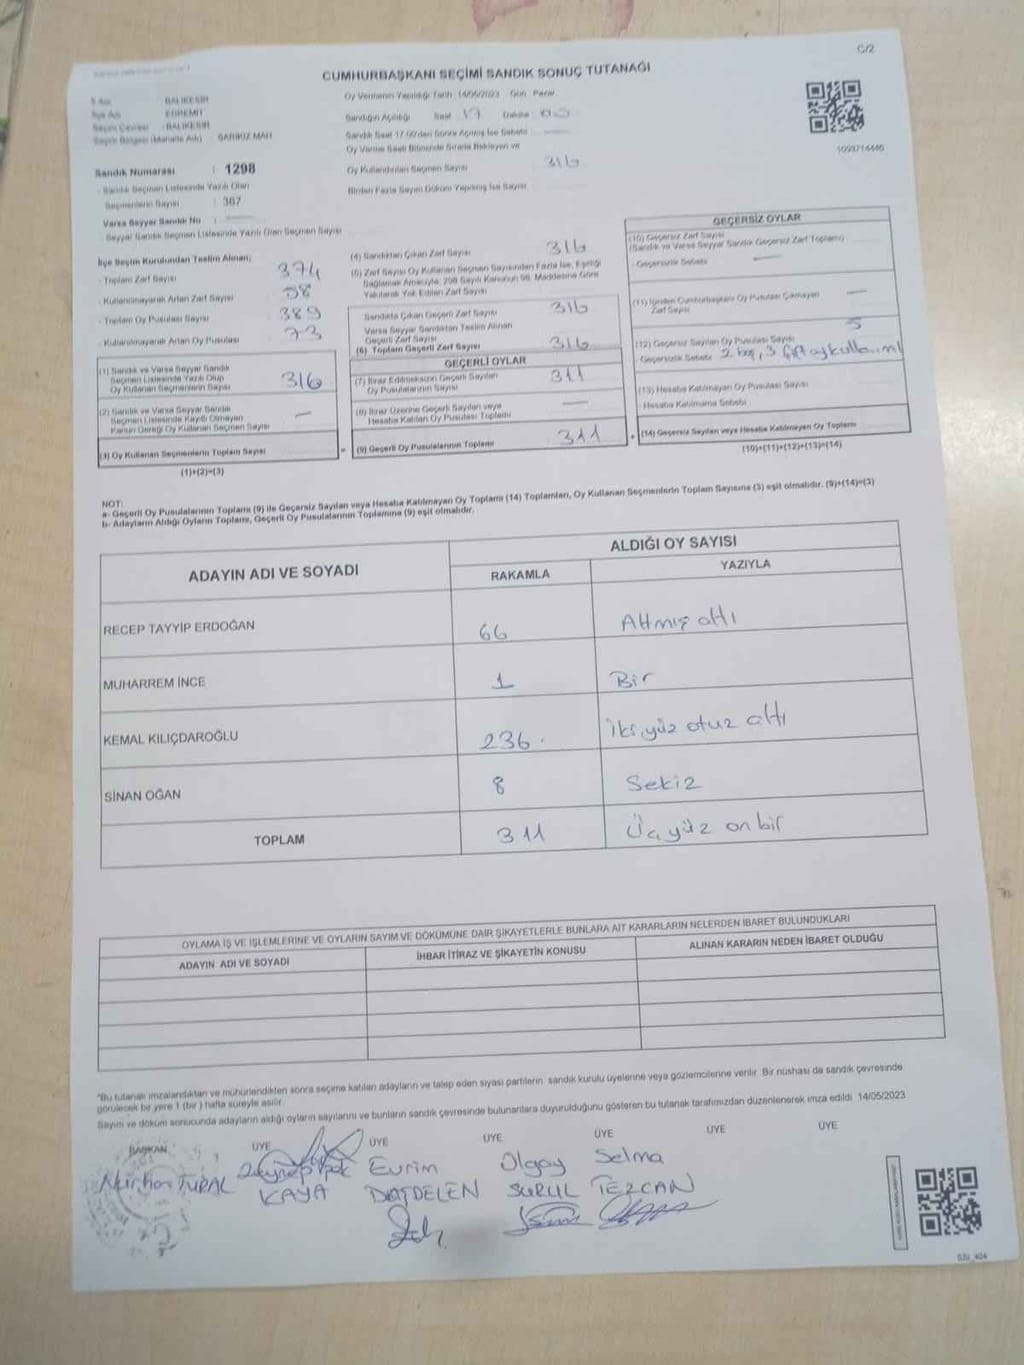 C/2
CUMHURBAŞKANI SEÇİMİ SANDIK SONUÇ TUTANAĞI
Oy Vermenin Yapıldığı Tarih : 14/05/2023 Gün : Pazar
İl Adı BALIKESİR
İlçe Adı EDREMİT
Seçim Çevresi : BALIKESİR
Seçim Bölgesi (Mahalle Adı)
Sandığın Açıldığı Saat 17 Dakika
Sandık Saat 17.00'dan Sonra Açılmış İse Sebebi
Oy Verme Saati Bitiminde Sırada Bekleyen ve
Oy Kullandırılan Seçmen Sayısı 316
Birden Fazla Sayım Döküm Yapılmış İse Sayısı
1093714446
Sandık Numarası : 1298
Sandık Seçmen Listesinde Yazılı Olan
Seçmenlerin Sayısı : 367
Varsa Seyyar Sandık No :
- Seyyar Sandık Seçmen Listesinde Yazılı Olan Seçmen Sayısı
İlçe Seçim Kurulundan Teslim Alınan;
- Toplam Zarf Sayısı 374
- Kullanılmayarak Artan Zarf Sayısı 58
- Toplam Oy Pusulası Sayısı 389
- Kullanılmayarak Artan Oy Pusulası 73
(1) Sandık ve Varsa Seyyar Sandık
Seçmen Listesinde Yazılı Olup
Oy Kullanan Seçmenlerin Sayısı 316
(2) Sandık ve Varsa Seyyar Sandık
Seçmen Listesinde Kayıtlı Olmayan
Kanun Gereği Oy Kullanan Seçmen Sayısı —
(3) Oy Kullanan Seçmenlerin Toplam Sayısı =
(1)+(2)=(3)
(4) Sandıktan Çıkan Zarf Sayısı 316
(5) Zarf Sayısı Oy Kullanan Seçmen Sayısından Fazla İse, Eşitliği
Sağlamak Amacıyla; 298 Sayılı Kanunun 98. Maddesine Göre
Yakılarak Yok Edilen Zarf Sayısı
Sandıkta Çıkan Geçerli Zarf Sayısı 316
Varsa Seyyar Sandıktan Teslim Alınan
Geçerli Zarf Sayısı
(6) Toplam Geçerli Zarf Sayısı 316
GEÇERLİ OYLAR
(7) İtiraz Edilmeksizin Geçerli Sayılan
Oy Pusulalarının Sayısı 311
(8) İtiraz Üzerine Geçerli Sayılan veya
Hesaba Katılan Oy Pusulası Toplamı —
(9) Geçerli Oy Pusulalarının Toplamı 311 +
GEÇERSİZ OYLAR
(10) Geçersiz Zarf Sayısı
(Sandık ve Varsa Seyyar Sandık Geçersiz Zarf Toplamı)
- Geçersizlik Sebebi —
(11) İçinden Cumhurbaşkanı Oy Pusulası Çıkmayan
Zarf Sayısı —
(12) Geçersiz Sayılan Oy Pusulası Sayısı 5
Geçersizlik Sebebi 2 boş, 3 çift oy kullanımı
(13) Hesaba Katılmayan Oy Pusulası Sayısı
- Hesaba Katılmama Sebebi
(14) Geçersiz Sayılan veya Hesaba Katılmayan Oy Toplamı
(10)+(11)+(12)+(13)=(14)
NOT:
a- Geçerli Oy Pusulalarının Toplamı (9) ile Geçersiz Sayılan veya Hesaba Katılmayan Oy Toplamı (14) Toplamları, Oy Kullanan Seçmenlerin Toplam Sayısına (3) eşit olmalıdır. (9)+(14)=(3)
b- Adayların Aldığı Oyların Toplamı, Geçerli Oy Pusulalarının Toplamına (9) eşit olmalıdır.
ADAYIN ADI VE SOYADI
ALDIĞI OY SAYISI
RAKAMLA YAZIYLA
RECEP TAYYİP ERDOĞAN 66 Altmış altı
MUHARREM İNCE 1 Bir
KEMAL KILIÇDAROĞLU 236 İkiyüz otuz altı
SİNAN OĞAN 8 Sekiz
TOPLAM 311 Üçyüz on bir
OYLAMA İŞ VE İŞLEMLERİNE VE OYLARIN SAYIM VE DÖKÜMÜNE DAİR ŞİKAYETLERLE BUNLARA AİT KARARLARIN NELERDEN İBARET BULUNDUKLARI
ADAYIN ADI VE SOYADI İHBAR İTİRAZ VE ŞİKAYETİN KONUSU ALINAN KARARIN NEDEN İBARET OLDUĞU
*Bu tutanak imzalandıktan ve mühürlendikten sonra seçime katılan adayların ve talep eden siyasi partilerin sandık kurulu üyelerine veya gözlemcilerine verilir. Bir nüshası da sandık çevresinde
görülecek bir yere 1 (bir) hafta süreyle asılır.
Sayım ve döküm sonucunda adayların aldığı oyların sayılarını ve bunların sandık çevresinde bulunanlara duyurulduğunu gösteren bu tutanak tarafımızdan düzenlenerek imza edildi. 14/05/2023
BAŞKAN ÜYE ÜYE ÜYE ÜYE ÜYE ÜYE
Nurhan TURAL Zeynep İpek Evrim Olgay Selma
KAYA DAĞDELEN SURUL TEZCAN